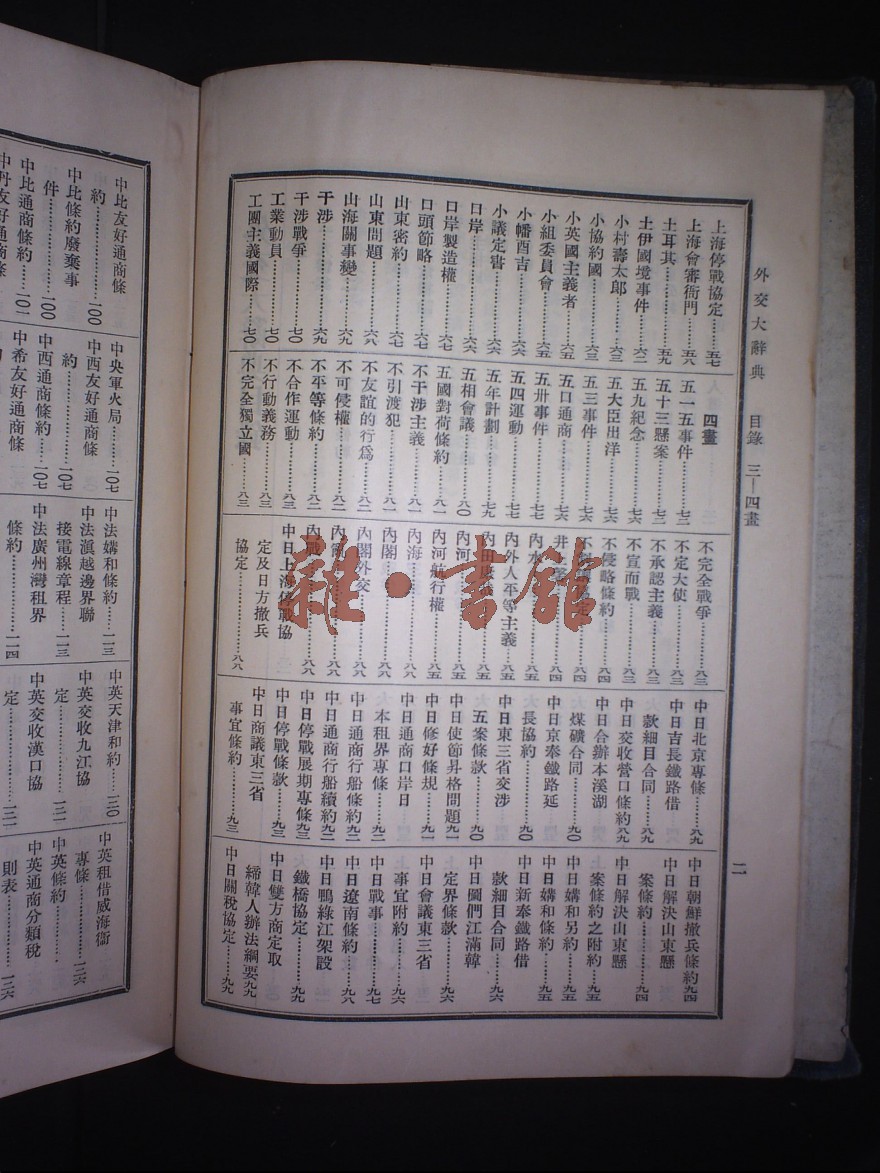 外交大辭典　目錄　三—四畫
二
上海停戰協定………五七
上海會審衙門………五八
土耳其………五九
土伊國境事件………六二
小村壽太郎………六三
小協約國………六三
小英國主義者………六五
小組委員會………六五
小幡酉吉………六六
小議定書………六六
口岸………六六
口岸製造權………六七
口頭節略………六七
山東密約………六七
山東問題………六八
山海關事變………六九
干涉………六九
干涉戰爭………七〇
工業動員………七〇
工團主義國際………七〇
四畫
五一五事件………七三
五十三懸案………七三
五九紀念………七五
五大臣出洋………七五
五三事件………七五
五口通商………七六
五卅事件………七六
五四運動………七六
五年計劃………七九
五相會議………八〇
五國對荷條約………八一
不干涉主義………八一
不引渡犯………八一
不友誼的行爲………八二
不可侵權………八二
不平等條約………八二
不合作運動………八三
不行動義務………八三
不完全獨立國………八三
不完全戰爭………八三
不定大使………八三
不承認主義………八三
不宣而戰………八三
不侵略條約………八四
內外人平等主義………八五
內河航行權………八五
內海………八八
內閣………八八
內閣外交………八八
中日上海停戰協
定及日方撤兵
協定………八八
中日北京專條………八九
中日吉長鐵路借
款細目合同………八九
中日交收營口條約八九
中日合辦本溪湖
煤礦合同………九〇
中日京奉鐵路延
長協約………九〇
中日東三省交涉
五案條款………九〇
中日使節昇格問題九一
中日修好條規………九一
中日通商口岸日
本租界專條………九二
中日通商行船條約九二
中日通商行船續約九二
中日停戰展期專條九三
中日停戰條款………九三
中日商議東三省
事宜條約………九三
中日朝鮮撤兵條約九四
中日解決山東懸
案條約………九四
中日解決山東懸
案條約之附約………九五
中日媾和另約………九五
中日媾和條約………九五
中日新奉鐵路借
款細目合同………九六
中日圖們江滿韓
定界條款………九六
中日會議東三省
事宜附約………九六
中日戰事………九七
中日遼南條約………九八
中日鴨綠江架設
鐵橋協定………九九
中日雙方商定取
締韓人辦法綱要九九
中日關稅協定………九九
中比友好通商條
約………100
中比條約廢棄事
件………100
中比通商條約………一〇一
中丹友好通商條
中央軍火局………一〇七
中西友好通商條
約………一〇七
中西通商條約………一〇七
中希友好通商條
中法媾和條約………一一三
中法滇越邊界聯
接電線章程………一一三
中法廣州灣租界
條約………一一四
中英天津和約………一三〇
中英交收九江協
定………
中英交收漢口協
定………
中英租借威海衞
專條………一三六
中英條約………
中英通商分類稅
則表………一三六
雜·書館